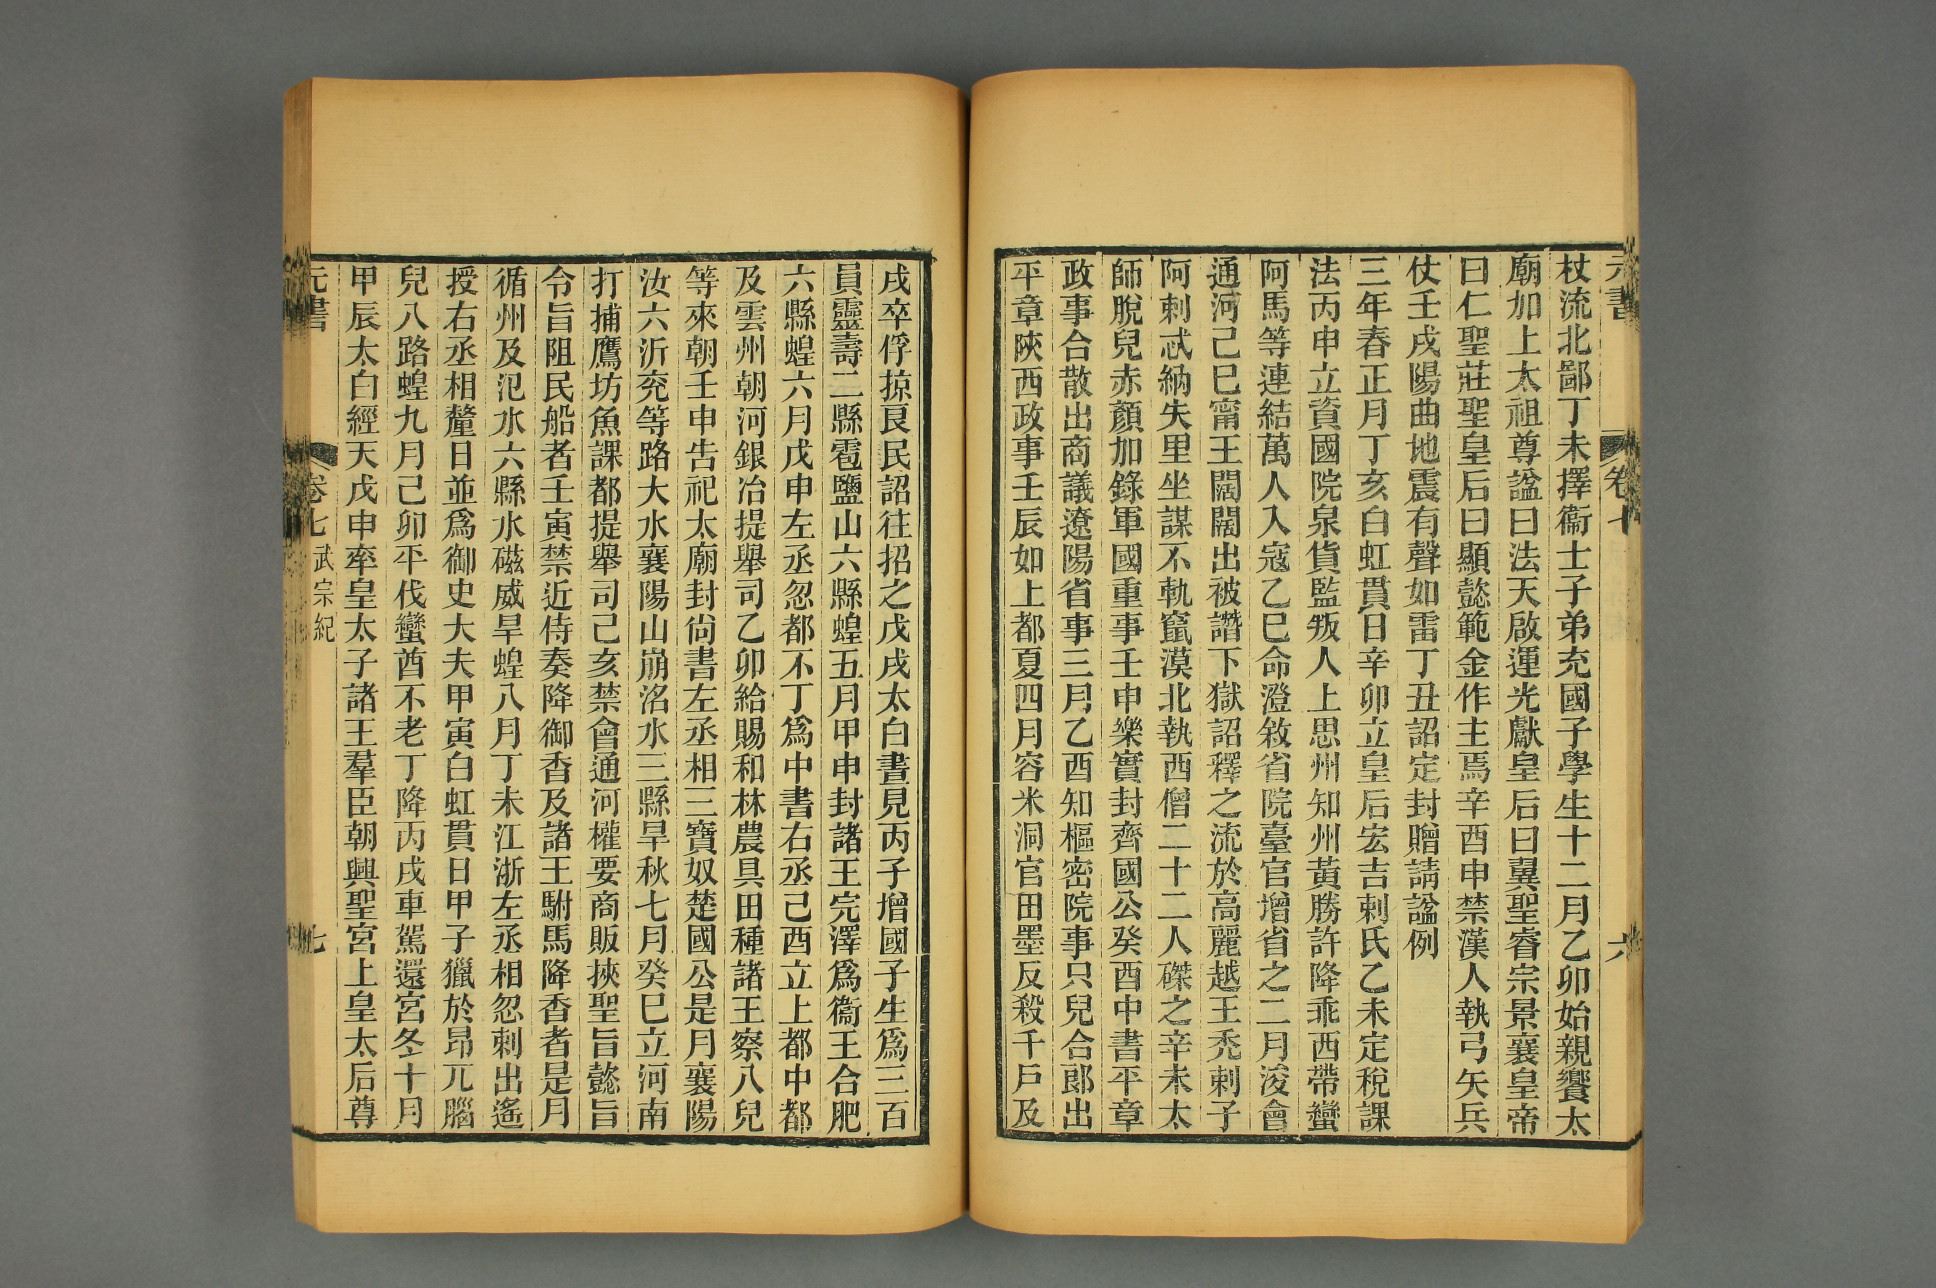 元書
卷七
六
杖流北鄙丁未擇衞士子弟充國子學生十二月乙卯始親饗太
廟加上太祖尊諡曰法天啟運光獻皇后曰翼聖睿宗景襄皇帝
曰仁聖莊聖皇后曰顯懿範金作主焉辛酉申禁漢人執弓矢兵
仗壬戌陽曲地震有聲如雷丁丑詔定封贈請諡例
三年春正月丁亥白虹貫日辛卯立皇后宏吉剌氏乙未定稅課
法丙申立資國院泉貨監叛人上思州知州黃勝許降乖西帶蠻
阿馬等連結萬人入寇乙巳命澄敘省院臺官增省之二月浚會
通河己巳甯王闊闊出被譖下獄詔釋之流於高麗越王禿剌子
阿剌忒納失里坐謀不軌竄漠北執西僧二十二人磔之辛未太
師脫兒赤顏加錄軍國重事壬申樂實封齊國公癸酉中書平章
政事合散出商議遼陽省事三月乙酉知樞密院事只兒合郎出
平章陝西政事壬辰如上都夏四月容米洞官田墨反殺千戶及
戍卒俘掠良民詔往招之戊戌太白晝見丙子增國子生爲三百
員靈壽二縣雹鹽山六縣蝗五月甲申封諸王完澤爲衞王合肥
六縣蝗六月戊申左丞忽都不丁爲中書右丞己酉立上都中都
及雲州朝河銀冶提舉司乙卯給賜和林農具田種諸王察八兒
等來朝壬申告祀太廟封尙書左丞相三寶奴楚國公是月襄陽
汝六沂兖等路大水襄陽山崩洺水三縣旱秋七月癸巳立河南
打捕鷹坊魚課都提舉司己亥禁會通河權要商販挾聖旨懿旨
令旨阻民船者壬寅禁近侍奏降御香及諸王駙馬降香者是月
循州及氾水六縣水磁威旱蝗八月丁未江浙左丞相忽剌出遙
授右丞相釐日並爲御史大夫甲寅白虹貫日甲子獵於昂兀腦
兒八路蝗九月己卯平伐蠻酋不老丁降丙戌車駕還宮冬十月
甲辰太白經天戊申率皇太子諸王羣臣朝興聖宮上皇太后尊
元書
卷七
武宗紀
七